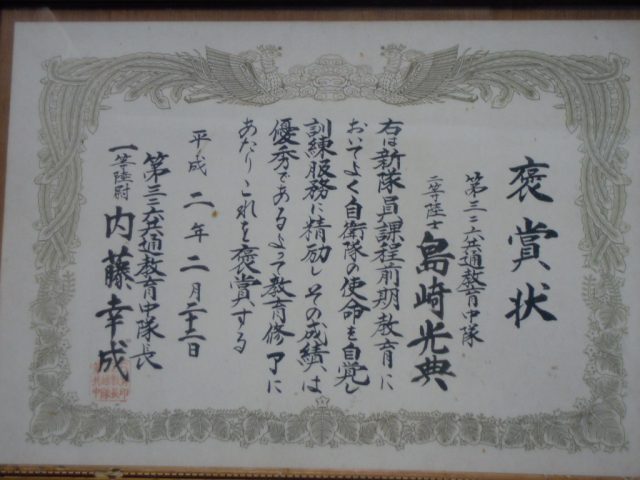 褒賞状
第三三六共通教育中隊
二等陸士 島崎光典
右は新隊員課程前期教育に
おいてよく自衛隊の使命を自覚し
訓練服務に精励しその成績は
優秀であるよって教育修了に
あたりこれを褒賞する
平成二年二月二十二日
第三三六共通教育中隊長
一等陸尉 内藤幸成